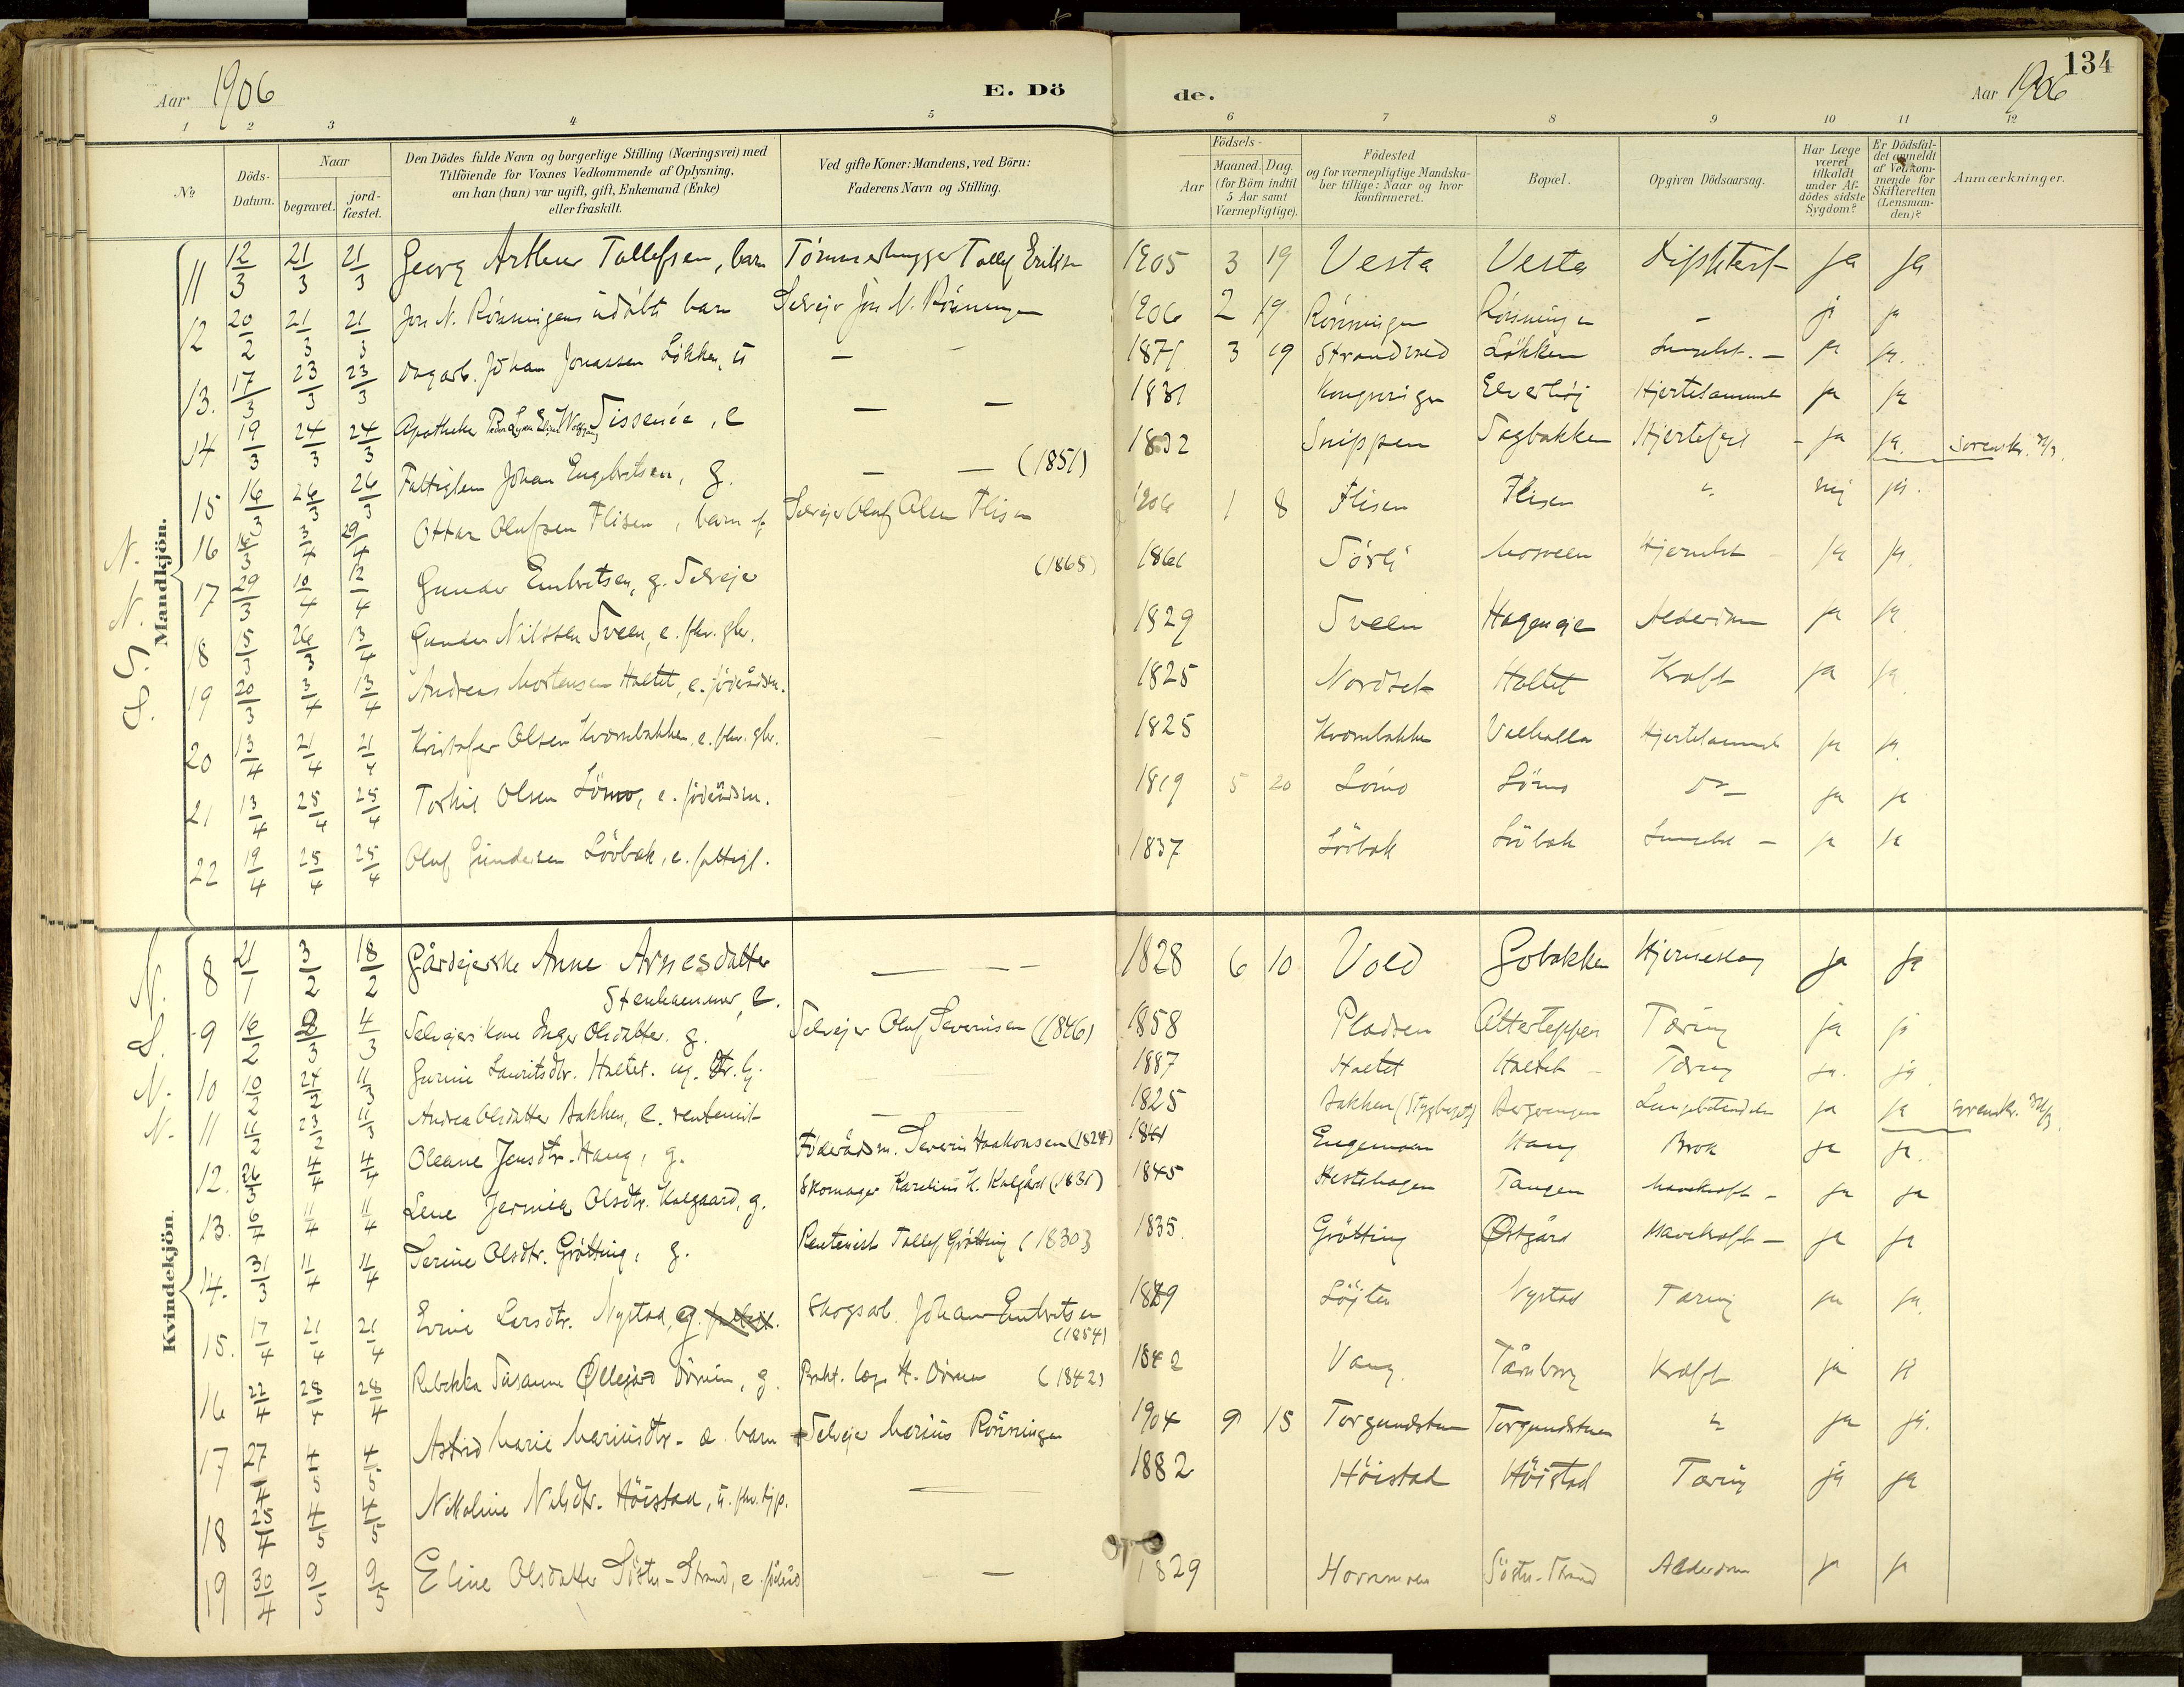 134
Aar 1906 E. Dö de. Aar 1906
1 2 3 4 5 6 7 8 9 10 11 12
No
Döds-Datum.
Naar
begravet.
jord-fæstet.
Den Dödes fulde Navn og borgerlige Stilling (Næringsvei) med
Tilföiende for Voxnes Vedkommende af Oplysning,
om han (hun) var ugift, gift, Enkemand (Enke)
eller fraskilt.
Ved gifte Koner: Mandens, ved Börn:
Faderens Navn og Stilling.
Födsels-
Aar
Maaned. Dag.
(for Börn indtil
5 Aar samt
Værnepligtige).
Födested
og for værnepligtige Mandska-
ber tillige: Naar og hvor
konfirmeret.
Bopæl.
Opgiven Dödsaarsag.
Har Læge
været
tilkaldt
under Af-
dödes sidste
Sygdom?
Er Dödsfal-
det anmeldt
af Vedkom-
mende for
Skifteretten
(Lensman-
den)?
Anmærkninger.
Mandkjön.
11 12/3 21/3 21/3 Georg Arthur Tollefsen, barn Tømmerhugger Tollef Eriksen 1905 3 19 Vesta Vesta ja ja
12 20/2 21/3 21/3 Jon N. Rönningens udöbt barn Selvejer Jon N. Rönningen 1906 2 19 Rönningen Rönningen - ja ja
13. 17/3 23/3 23/3 Dagarb. Johan Jonassen Løkken, u — 3 19 Strandved Løkken ja ja
14 19/3 24/3 24/3 Apotheker Tissenée, e — — 1831 Kongsvinger Elverhöj ja ja
15 16/3 26/3 26/3 Fattiglem Johan Engebretsen, g. — — (1851) 1832 Snippen Sagbakken Hjertefejl - ja ja. sorenskr.
N. 16 16/3 3/4 29/4 Ottar Olufsen Flisen, barn af Selvejer Oluf Olsen Flisen 1906 1 8 Flisen Flisen " nej ja.
N. 17 29/3 10/4 12/4 Gunder Embretsen, g. Selvejer (1868) 1861 Sörli Mosveen ja ja.
S. 18 15/3 26/3 13/4 Gunder Nilssen Sveen, e. fhv. gbr. 1829 Sveen Hagenga Alderdom ja ja
S. 19 20/3 3/4 13/4 Andreas Mortensen Holtet, e. föderådsm. 1825 Nordset Holtet Kræft ja ja
20 13/4 21/4 21/4 Kristofer Olsen Kvernbakken, e. fhv. gbr. 1825 Kvernbakken Valhalla ja ja.
21 13/4 25/4 25/4 Torkil Olsen Lömo, e. föderådsm. 1819 5 20 Lömo Lömo Do ja ja
22 19/4 25/4 25/4 Oluf Gundersen Lövbak, e. fattigl. 1837 Lövbak Lövbak - ja ja
Kvindekjön.
N. 8 21/1 3/2 18/2 Gårdejerske Anne Arnesdatter
Stenhammer, e. — — — 1828 6 10 Vold Gobakken Hjerneslag ja ja
S. 9 16/2 /3 4/3 Selvejers kone Inger Olsdatter. g. Selvejer Oluf Severinsen (1846) 1858 Pladsen Otterteppen Tæring ja ja
N. 10 10/2 24/2 11/3 Gurine Lauritsdtr. Holtet. ug. 1887 Holtet Holtet Tæring ja. ja
N. 11 15/2 23/2 11/3 Andrea Olsdatter Bakken, e. rentenist — — 1825 Bakken Bergvangen Lungebetændelse ja ja sorenskr.
12. 26/3 4/4 4/4 Oleane Jensdtr. Haug, g. Föderådsm. Severin Haakonsen (1824) 1841 Engemoen Haug Brok ja ja.
13. 6/4 11/4 11/4 Lene Jernia Olsdtr. Kalgaard, g. Skomager Karelius K. Kalgård (1831) 1845 Hestehagen Tangen Mavekræft - ja ja
14. 31/3 11/4 11/4 Serine Olsdtr. Grötting, g. Rentenist Tollef Grötting (1830) 1835. Grötting Østgård Mavekræft - ja ja
15. 17/4 21/4 21/4 Evine Larsdtr. Nystad, g. Skogsarb. Johan Embretsen
(1854) Löjten Nystad Tæring ja ja.
16 22/4 28/4 28/4 Rebekka Susanne Øllegård Dörum, g. Prakt. læge H. Dörum (1842) 1842 Vang Tårnborg Kræft ja ja
17 27/4 4/5 4/5 Astrid Marie Mariusdtr. æ. barn Selvejer Marius Rönningen 1904 9 15 Torgundstuen Torgundstuen " ja ja.
18 25/4 4/5 4/5 Nikoline Nilsdtr. Höistad, u. fhv. tjp. — 1882 Höistad Höistad Tæring ja ja
19 30/4 9/5 9/5 Eline Olsdatter Söstu-Strand, e. föderåd — 1829 Hornmoen Söstu-Strand Alderdom ja ja